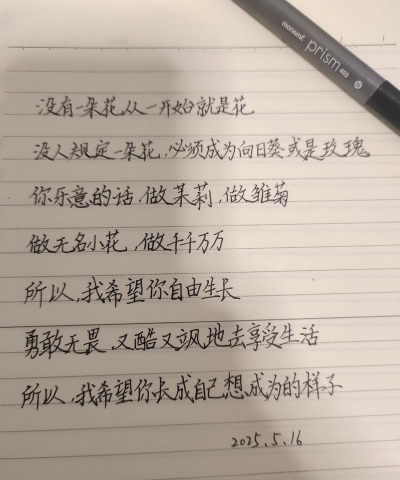 monami prism 402
没有一朵花,从一开始就是花
没人规定一朵花,必须成为向日葵或是玫瑰
你乐意的话,做茉莉,做雏菊
做无名小花,做千千万万
所以,我希望你自由生长
勇敢无畏,又酷又飒地去享受生活
所以,我希望你长成自己,想成为的样子
2025.5.16